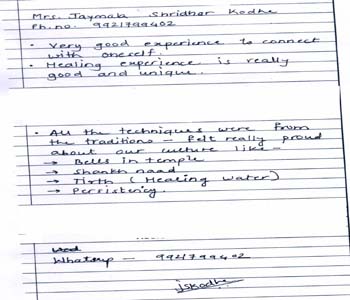 Mrs. Jaymala Shridhar Kodhe
Ph.no. 9921799402
• Very good experience to connect
with oneself.
• Healing experience is really
good and unique.
• All the techniques were from
the traditions - felt really proud
about our culture like -
→ Bells in temple
→ Shankh naad
→ Tirth (Healing water)
→ Persistency.
Whatsup - 9921799402
jskodhe